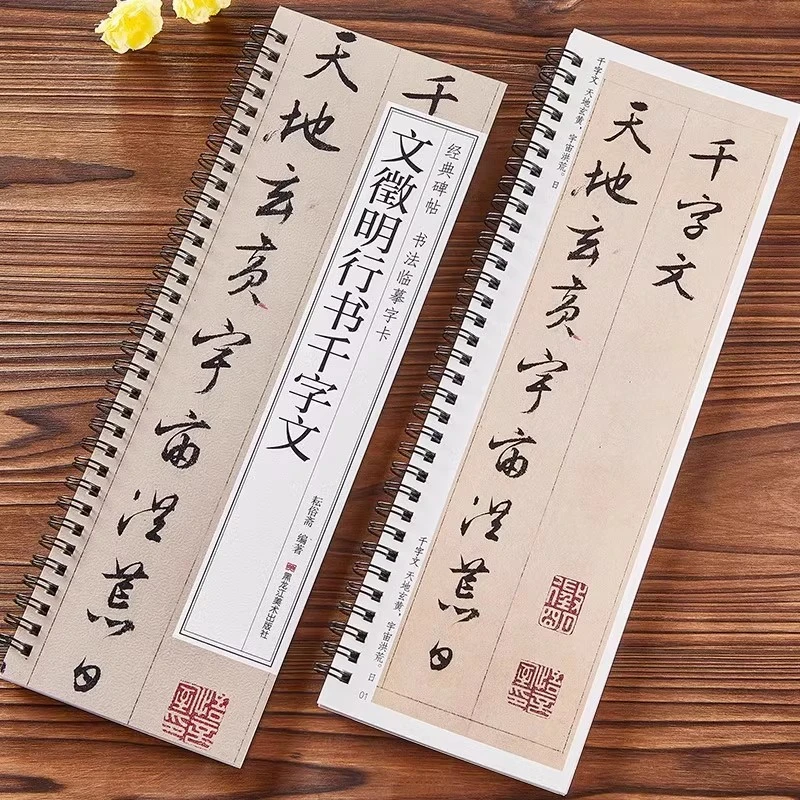 千
天地玄黄宇宙洪荒日
悟言室印
经典碑帖 书法临摹字卡
文徵明行书千字文
耘俗斋 编著
黑龙江美术出版社
千字文
天地玄黄宇宙洪荒日
徵明
悟言室印
千字文 天地玄黄,宇宙洪荒。日
千字文 天地玄黄,宇宙洪荒。日
01